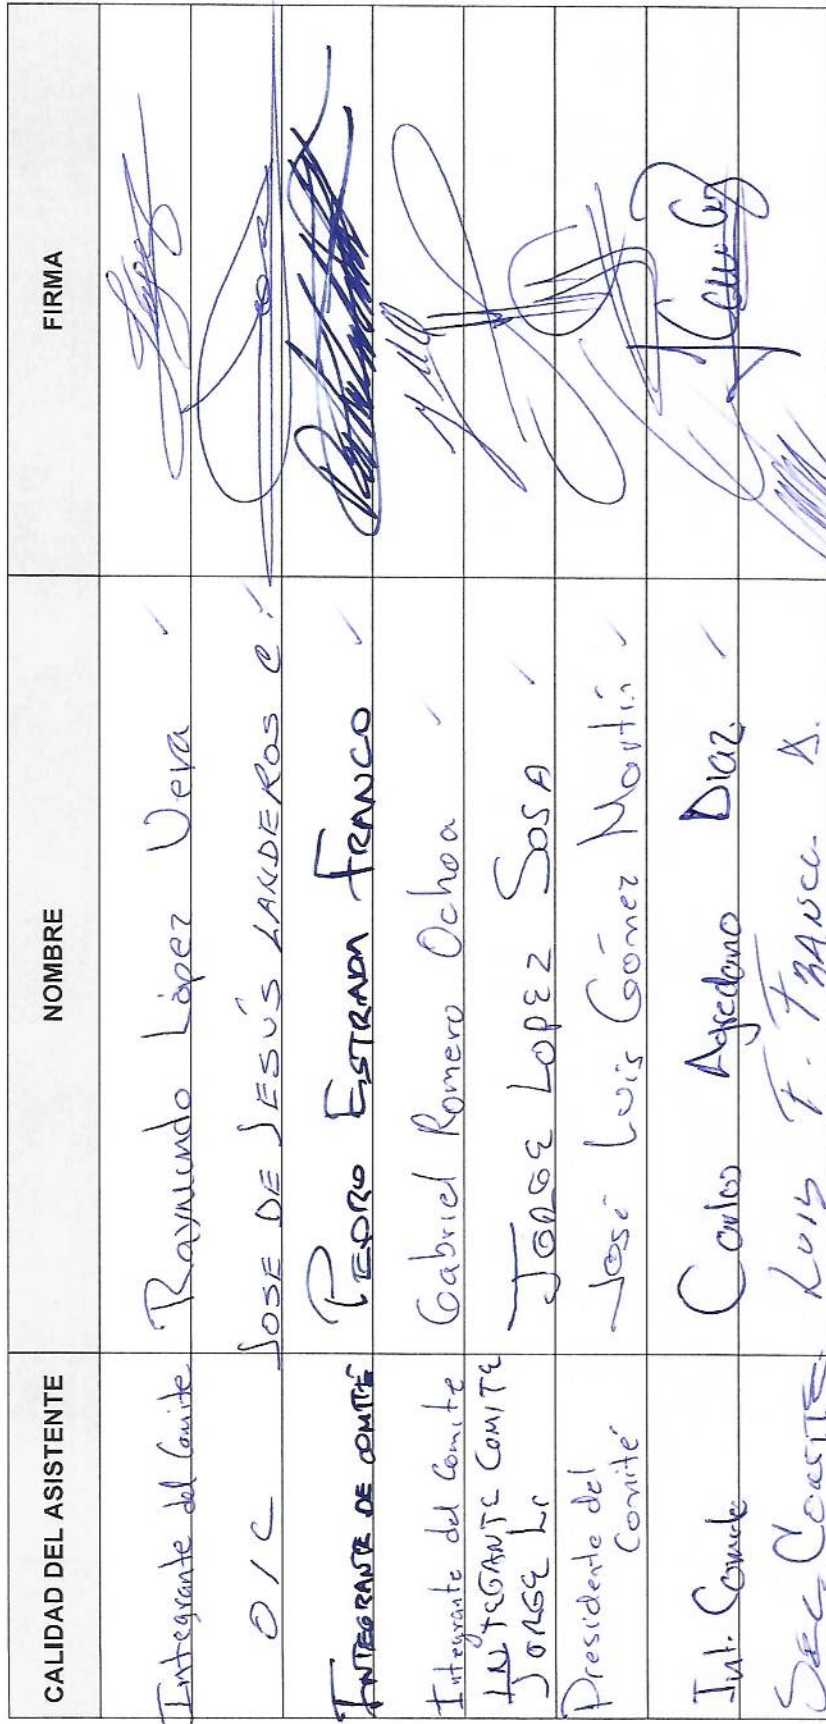 CALIDAD DEL ASISTENTE NOMBRE FIRMA
Integrante del Comite Raymundo López Vera
OIC JOSE DE JESÚS LANDEROS C.
INTEGRANTE DE COMITÉ PEDRO ESTRADA FRANCO
Integrante del Comite Gabriel Romero Ochoa
INTEGANTE COMITE JORGE LOPEZ SOSA
JORGE
Presidente del José Luis Gómez Martín
Comité
Int. Comite Carlos Agredano Diaz
SEC. COMITE LUIS F. A.